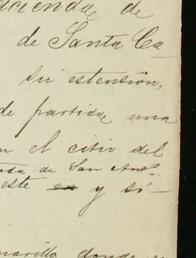 acienda de
de Santa Ca
su estension,
de partida una
n el citio del
asa de San Antº.
este y si-
marillo donde